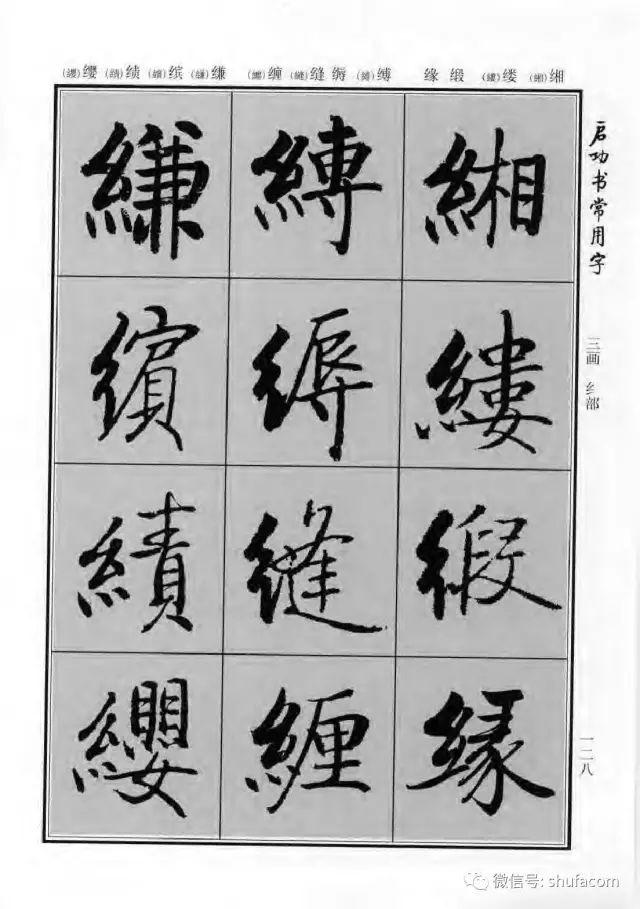 (纓)缨 (績)绩 (繽)缤 (縑)缣 (纏)缠 (縫)缝 缛 (縛)缚 缘 缎 (縷)缕 (緗)缃
启功书常用字
三画 纟部
一二八
緗
縷
緞
緣
縛
縟
縫
纏
縑
繽
績
纓
微信号: shufacom